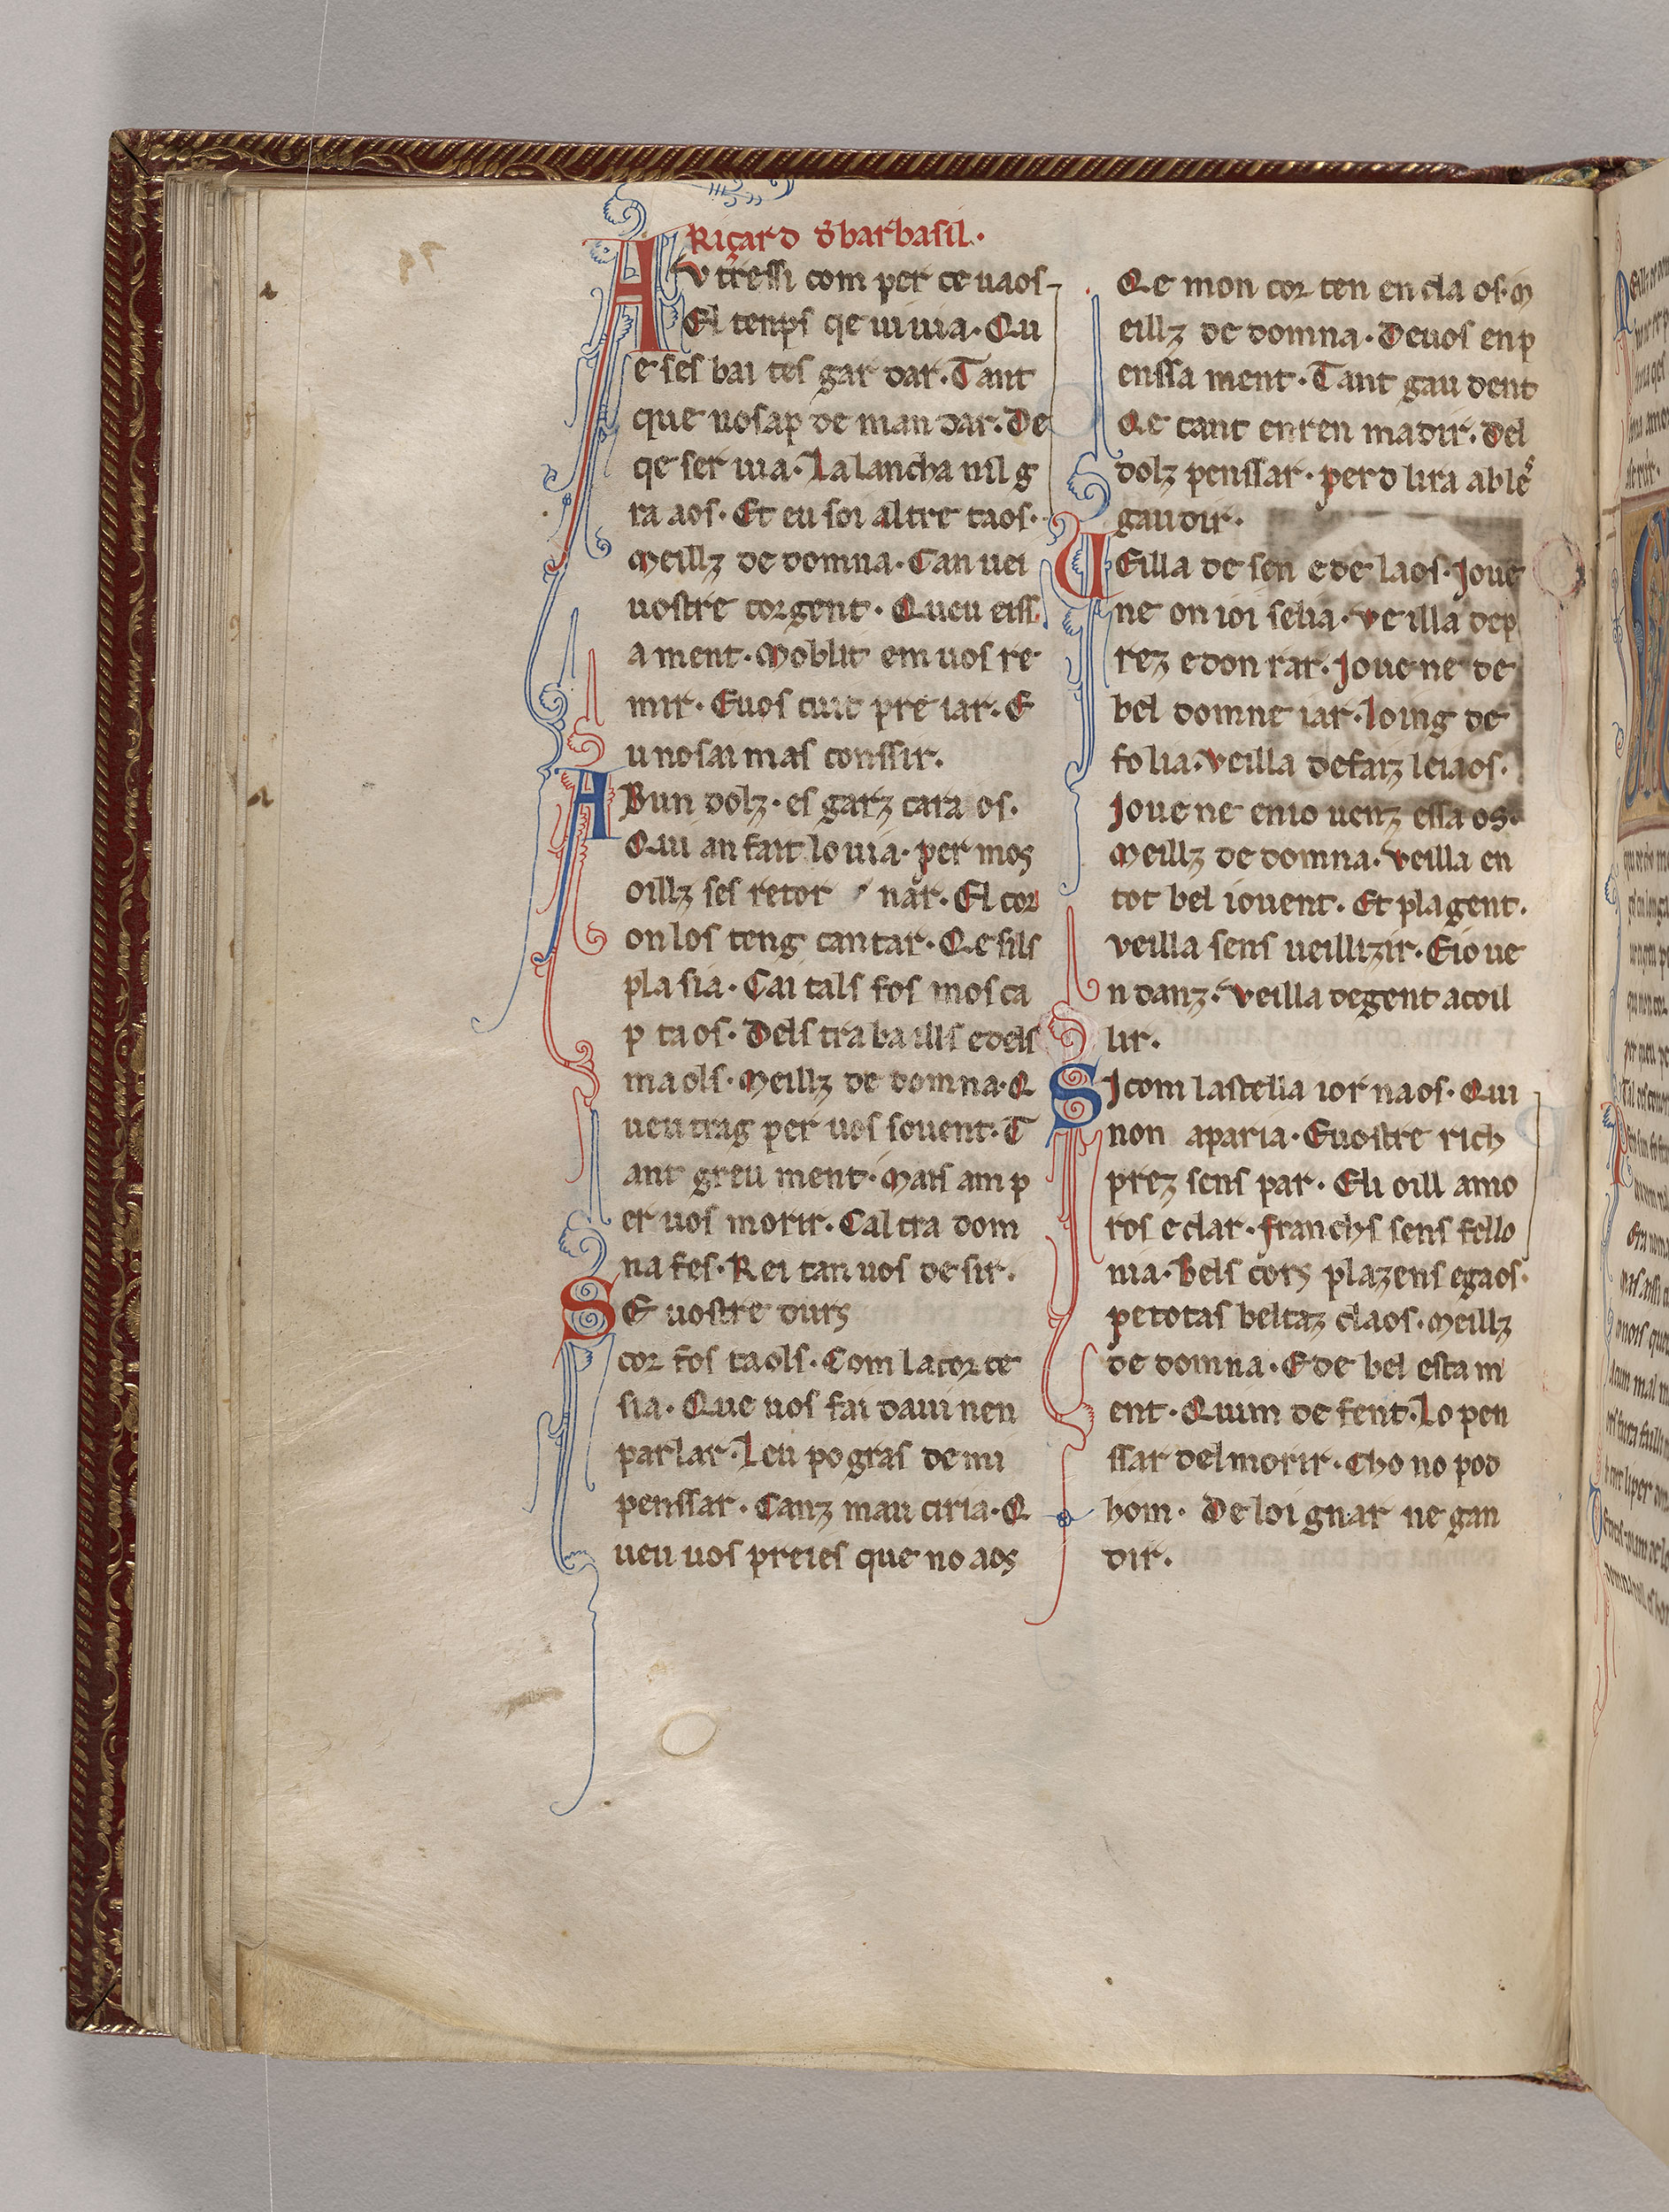 Riçard d̄ barbasil.
AVtressi com per ce uaos
El tenps qe uiuia. Qu
e ses bai tes gar dar. Tant
que nosap de man dar. De
qe ser uia. La lancha nil g
ra aos. Et eu soi altre taos.
Meillz de domna. Can uei
uostre cor gent. Queu eiss
a ment. Moblit em uos re
mir. Euos cuit pre iar. E
u nosai mas conssir.
ABun dolz. es garz cara os.
Qui an fait lo uia. per mos
oillz ses retor nar. El cor
on los teng can tar. Qe sils
pla sia. Cai tals fos mos ca
p ta os. Dels tra ba ills edels
ma ols. Meillz de domna. Q
ueu trag per uos souent. T
ant greu ment. Mais am p
er uos morir. Cal tra dom
na fes. Rei tan uos de sir.
SE uostre durs
cor fos ta ols. Com la cor te
sia. Que uos fai daui nen
par lar. Leu po gras de mi
penssar. Canz mau ciria. Q
ueu uos preies que no aos
Qe mon cor ten en cla os. M
eillz de domna. Deuos enp
enssa ment. Tant gau dent
Qe tant en ren madir. Del
dolz penssar. perd lira able
gaudir.
UEilla de sen e de laos. Joue
ne on ioi selia. Ve illa de p
rez e don rar. Joue ne de
bel domne iar. loing de
fo lia. Veilla de faiz leiaos.
Joue ne enio uenz essa os.
Meillz de domna. Veilla en
tot bel iouent. Et pla gent.
Veilla sens ueillizir. E io ue
n danz. Veilla de gent acoil
lir.
SJ com lastella ior naos. Qui
non aparia. E uostre rich
prez sens par. Eli oill amo
ros e clar. franchs sens fello
nia. Bels cors plazens egaos.
pe totas beltaz claos. Meillz
de domna. E de bel esta m
ent. Quim de fent. Lo pen
ssar del morir. Cho no pod
hom. De loi gnar ne gan
dir.